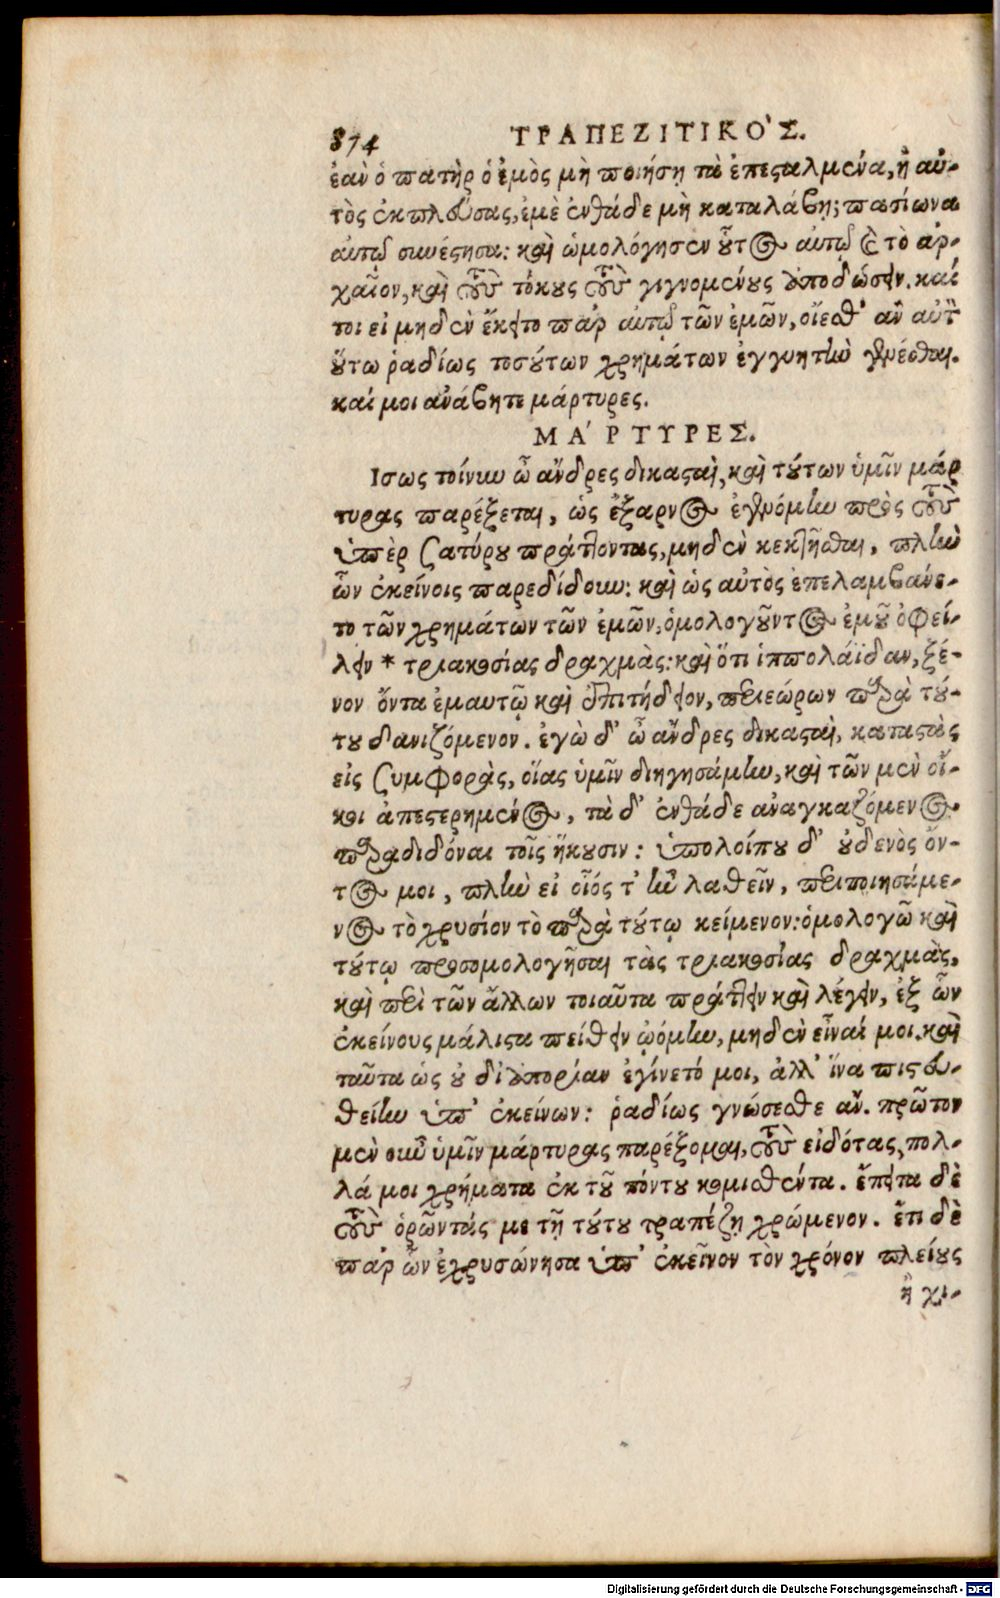 874 ΤΡΑΠΕΖΙΤΙΚΟ´Σ.
ἐὰν ὁ πατὴρ ὁ ἐμὸς μὴ ποιήσῃ τὰ ἐπεσταλμένα, ἢ αὐ-
τὸς ἐκπλεύσας, ἐμὲ ἐνθάδε μὴ καταλάβῃ; πασίωνα
αὐτῷ συνέστησα: καὶ ὡμολόγησεν οὗτος αὐτῷ καὶ τὸ ἀρ-
χαῖον, καὶ τοὺς τόκους τοὺς γιγνομένους ἀποδώσειν. καί
τοι εἰ μηδὲν ἔκειτο παρ' αὐτῷ τῶν ἐμῶν, οἴεσθ' ἂν αὐτὸν
οὕτω ῥαδίως τοσούτων χρημάτων ἐγγυητὴν γενέσθαι.
καί μοι ἀνάβητε μάρτυρες.
ΜΑ´ΡΤΥΡΕΣ.
Ισως τοίνυν ὦ ἄνδρες δικασταὶ, καὶ τούτων ὑμῖν μάρ
τυρας παρέξεται, ὡς ἔξαρνος ἐγενόμην πρὸς τοὺς
ὑπὲρ Σατύρου πράττοντας, μηδὲν κεκτῆσθαι, πλὴν
ὧν ἐκείνοις παρεδίδουν: καὶ ὡς αὐτὸς ἐπελαμβάνε-
το τῶν χρημάτων τῶν ἐμῶν, ὁμολογοῦντος ἐμοῦ ὀφεί-
λειν * τριακοσίας δραχμὰς: καὶ ὅτι ἱππολάϊδαν, ξέ-
νον ὄντα ἐμαυτῷ καὶ ἐπιτήδειον, περιεώρων παρὰ τού-
του δανιζόμενον. ἐγὼ δ' ὦ ἄνδρες δικασταὶ, καταστὰς
εἰς συμφορὰς, οἵας ὑμῖν διηγησάμην, καὶ τῶν μὲν οἴ-
κοι ἀπεστερημένος, τὰ δ' ἐνθάδε ἀναγκαζόμενος
παραδιδόναι τοῖς ἥκουσιν: ὑπολοίπου δ' οὐδενὸς ὄν-
τος μοι, πλὴν εἰ οἷός τ' ἦν λαθεῖν, περιποιησάμε-
νος τὸ χρυσίον τὸ παρὰ τούτῳ κείμενον: ὁμολογῶ καὶ
τούτῳ προσομολογῆσαι τὰς τριακοσίας δραχμὰς,
καὶ περὶ τῶν ἄλλων τοιαῦτα πράττειν καὶ λέγειν, ἐξ ὧν
ἐκείνους μάλιστα πείθειν ᾠόμην, μηδὲν εἶναί μοι. καὶ
ταῦτα ὡς οὐ δι' ἀπορίαν ἐγίνετό μοι, ἀλλ' ἵνα πιστευ-
θείην ὑπ' ἐκείνων: ῥαδίως γνώσεσθε ἄν. πρῶτον
μὲν οὖν ὑμῖν μάρτυρας παρέξομαι, τοὺς εἰδότας, πολ-
λά μοι χρήματα ἐκ τοῦ πόντου κομισθέντα. ἔπειτα δὲ
τοὺς ὁρῶντάς με τῇ τούτου τραπέζῃ χρώμενον. ἔτι δὲ
παρ' ὧν ἐχρυσώνησα ὑπ' ἐκεῖνον τὸν χρόνον πλείους
ἢ χι-
Digitalisierung gefördert durch die Deutsche Forschungsgemeinschaft - DFG